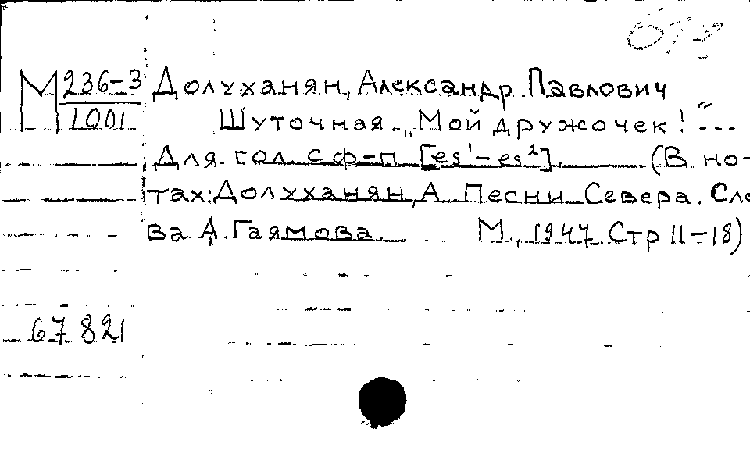 М 236-3 Долуханян, Александр Павлович
1001 Шуточная. „Мой дружочек!"...
Для гол. с ф-п. [es¹-es²]. (В но-
тах: Долуханян, А. Песни Севера. Сло
ва А. Гаямова. М., 1947. Стр 11-18)
67 821